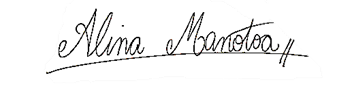 Alina Manotoa